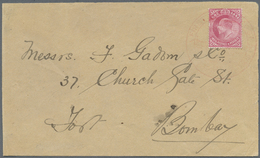 Messrs. F. Gadum & Co
37, Church Gate St.
Fort.
Bombay